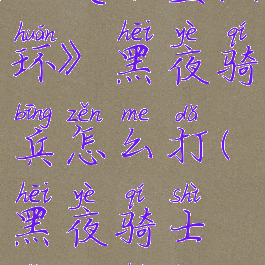 huán hēi yè qí
环》 黑夜骑
bīng zěn me dǎ
兵怎么打(
hēi yè qí shì
黑夜骑士